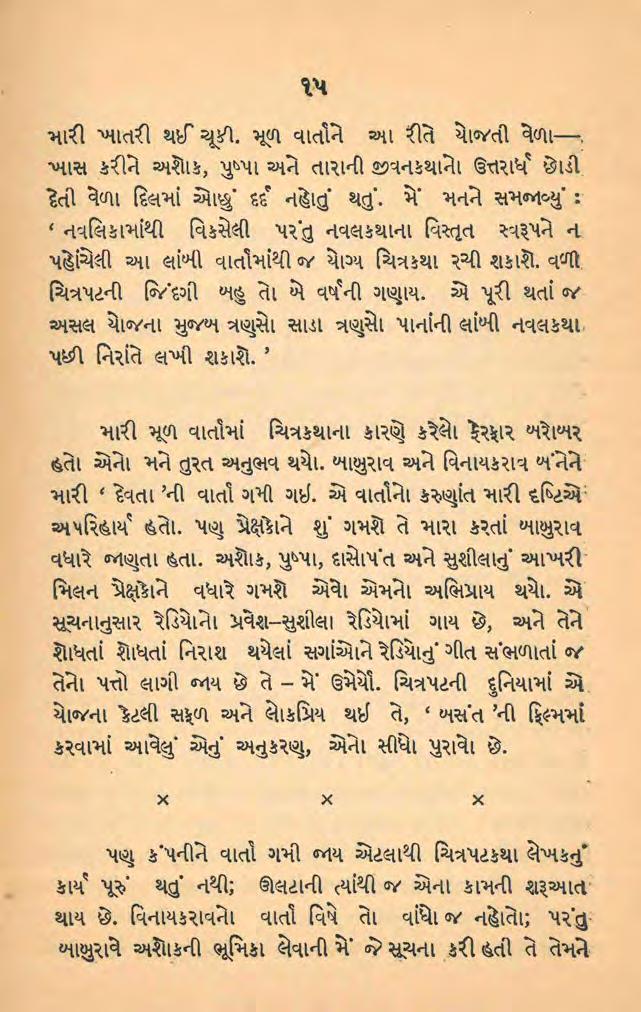 ૧૫
મારી ખાતરી થઈ ચૂકી. મૂળ વાર્તાને આ રીતે યોજતી વેળા—
ખાસ કરીને અશોક, પુષ્પા અને તારાની જીવનકથાનો ઉત્તરાર્ધ છોડી
દેતી વેળા દિલમાં ઓછું દર્દ નહોતું થતું. મેં મનને સમજાવ્યું :
‘ નવલિકામાંથી વિકસેલી પરંતુ નવલકથાના વિસ્તૃત સ્વરૂપને ન
પહોંચેલી આ લાંબી વાર્તામાંથી જ યોગ્ય ચિત્રકથા રચી શકાશે. વળી
ચિત્રપટની જિંદગી બહુ તો બે વર્ષની ગણાય. એ પૂરી થતાં જ
અસલ યોજના મુજબ ત્રણસો સાડા ત્રણસો પાનાંની લાંબી નવલકથા
પછી નિરાંતે લખી શકાશે. ’
મારી મૂળ વાર્તામાં ચિત્રકથાના કારણે કરેલો ફેરફાર બરોબર
હતો એનો મને તુરત અનુભવ થયો. બાબુરાવ અને વિનાયકરાવ બંનેને
મારી ‘ દેવતા ’ની વાર્તા ગમી ગઇ. એ વાર્તાનો કરુણાંત મારી દૃષ્ટિએ
અપરિહાર્ય હતો. પણ પ્રેક્ષકોને શું ગમશે તે મારા કરતાં બાબુરાવ
વધારે જાણતા હતા. અશોક, પુષ્પા, દાસોપંત અને સુશીલાનું આખરી
મિલન પ્રેક્ષકોને વધારે ગમશે એવો એમનો અભિપ્રાય થયો. એ
સૂચનાનુસાર રેડિયોનો પ્રવેશ–સુશીલા રેડિયોમાં ગાય છે, અને તેને
શોધતાં શોધતાં નિરાશ થયેલાં સગાંઓને રેડિયોનું ગીત સંભળાતાં જ
તેનો પત્તો લાગી જાય છે તે – મેં ઉમેર્યો. ચિત્રપટની દુનિયામાં એ
યોજના કેટલી સફળ અને લોકપ્રિય થઈ તે, ‘ બસંત ’ની ફિલ્મમાં
કરવામાં આવેલું એનું અનુકરણ, એનો સીધો પુરાવો છે.
× × ×
પણ કંપનીને વાર્તા ગમી જાય એટલાથી ચિત્રપટકથા લેખકનું
કાર્ય પૂરું થતું નથી; ઊલટાની ત્યાંથી જ એના કામની શરૂઆત
થાય છે. વિનાયકરાવનો વાર્તા વિષે તો વાંધો જ નહોતો; પરંતુ
બાબુરાવે અશોકની ભૂમિકા લેવાની મેં જે સૂચના કરી હતી તે તેમને